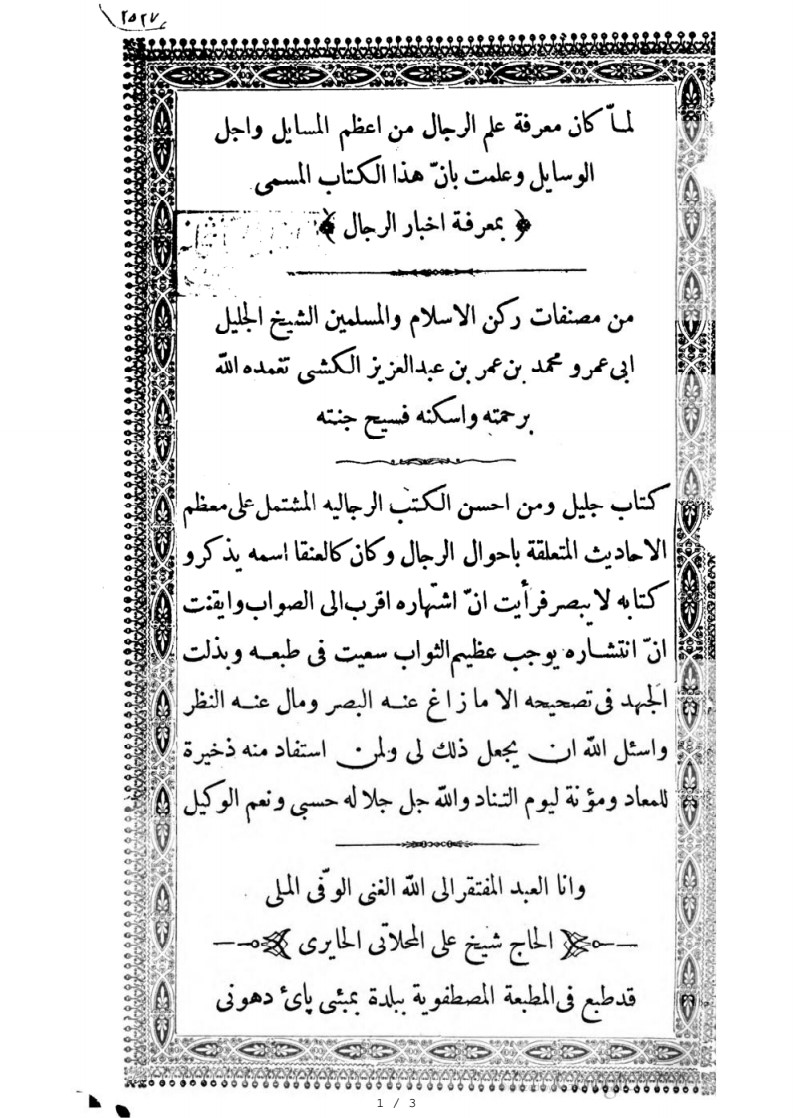 ٢٥٢٧
لمـاّ كان معرفة علم الرجال من اعظم المسايل واجل
الوسايل وعلمت بانّ هذا الكتاب المسمى
﴿ بمعرفة اخبار الرجال ﴾
من مصنفات ركن الاسلام والمسلمين الشيخ الجليل
ابى عمرو محمد بن عمر بن عبدالعزيز الكشى تغمده الله
برحمته واسكنه فسيح جنته
كتاب جليل ومن احسن الكتب الرجاليه المشتمل على معظم
الاحاديث المتعلقة باحوال الرجال وكان كالعنقا اسمه يذكر و
كتابه لا يبصر فرأيت انّ اشتهاره اقرب الى الصواب وايقنت
انّ انتشـاره يوجب عظيم الثواب سعيت فى طبعـه وبذلت
الجهد فى تصحيحه الا ما زاغ عنـه البصر ومال عنـه النظر
واسئل الله ان يجعل ذلك لى ولمن استفاد منه ذخيرة
للمعاد ومؤنة ليوم التناد والله جل جلاله حسبى ونعم الوكيل
وانا العبد المفتقر الى الله الغنى الوفّى الملى
الحاج شيخ على المحلاتى الحايرى
قد طبع فى المطبعة المصطفوية ببلدة بمبئى پائ دهونى
1 / 3